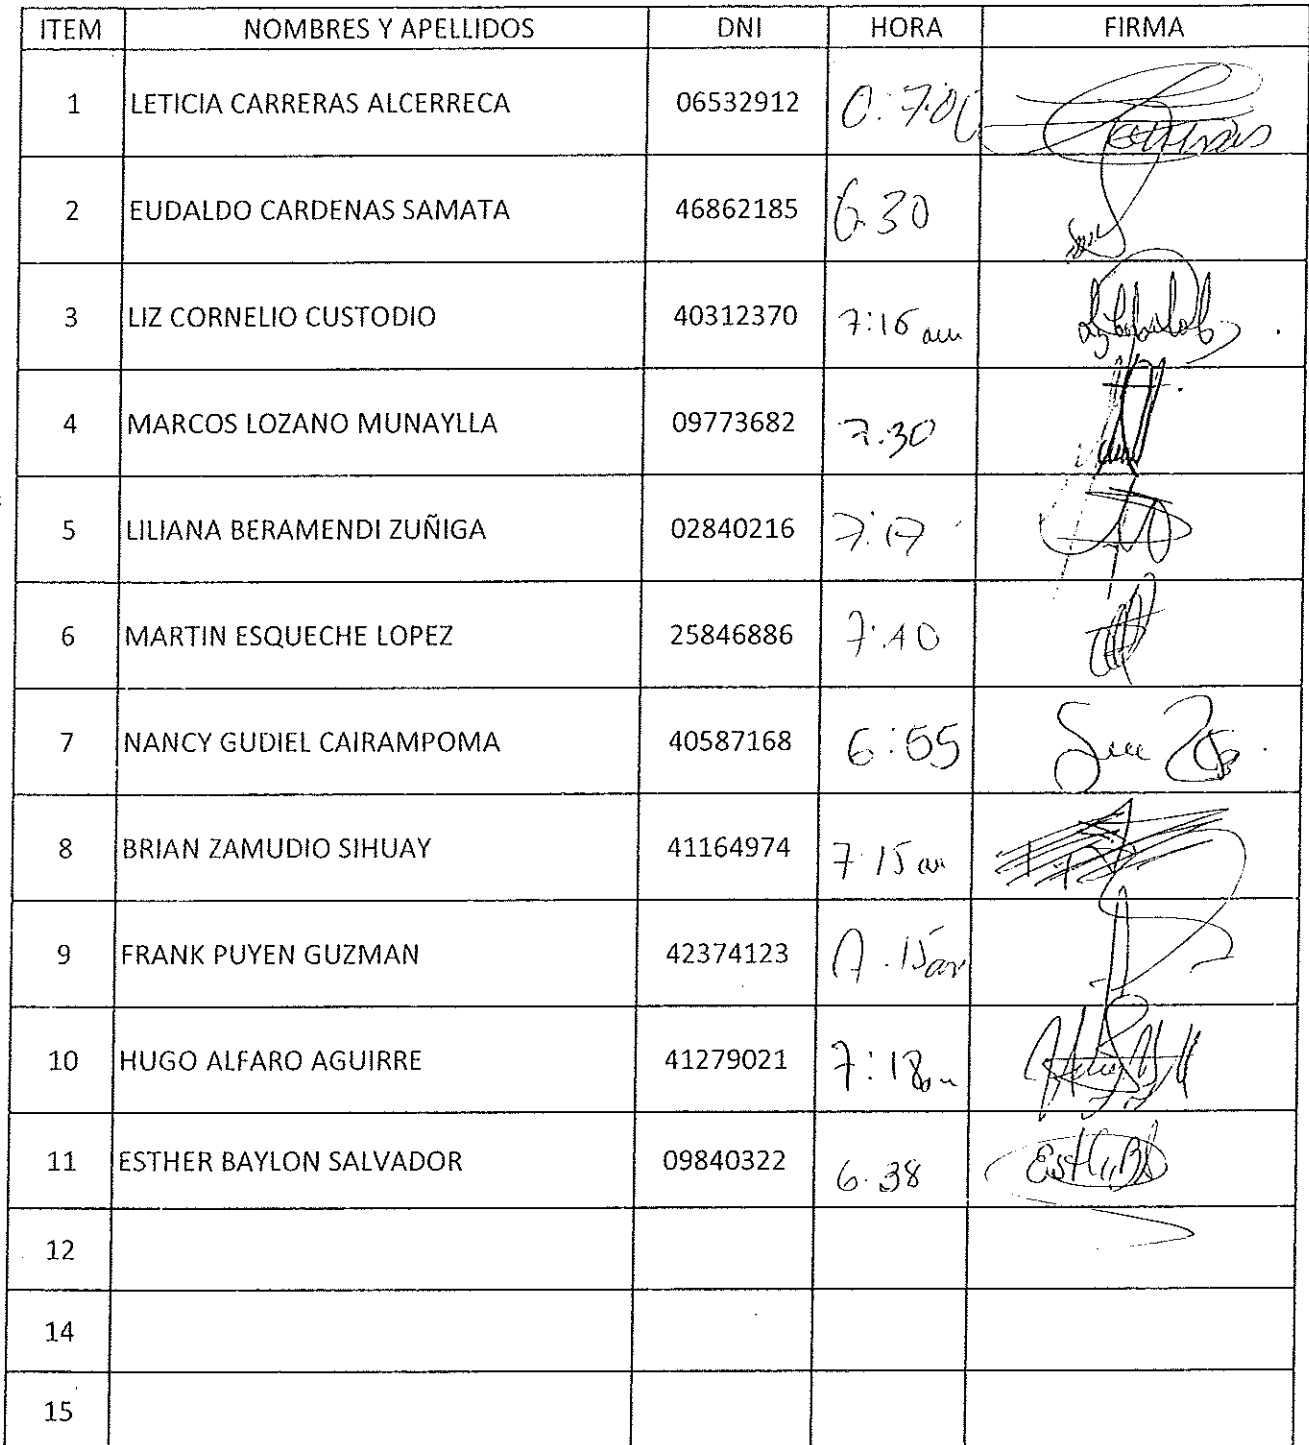 ITEM NOMBRES Y APELLIDOS DNI HORA FIRMA
1 LETICIA CARRERAS ALCERRECA 06532912 0:7:00
2 EUDALDO CARDENAS SAMATA 46862185 6.30
3 LIZ CORNELIO CUSTODIO 40312370 7:16 am
4 MARCOS LOZANO MUNAYLLA 09773682 7.30
5 LILIANA BERAMENDI ZUÑIGA 02840216 7:17
6 MARTIN ESQUECHE LOPEZ 25846886 7:40
7 NANCY GUDIEL CAIRAMPOMA 40587168 6:55
8 BRIAN ZAMUDIO SIHUAY 41164974 7:15 am
9 FRANK PUYEN GUZMAN 42374123 7.15am
10 HUGO ALFARO AGUIRRE 41279021 7:18am
11 ESTHER BAYLON SALVADOR 09840322 6.38
12
14
15